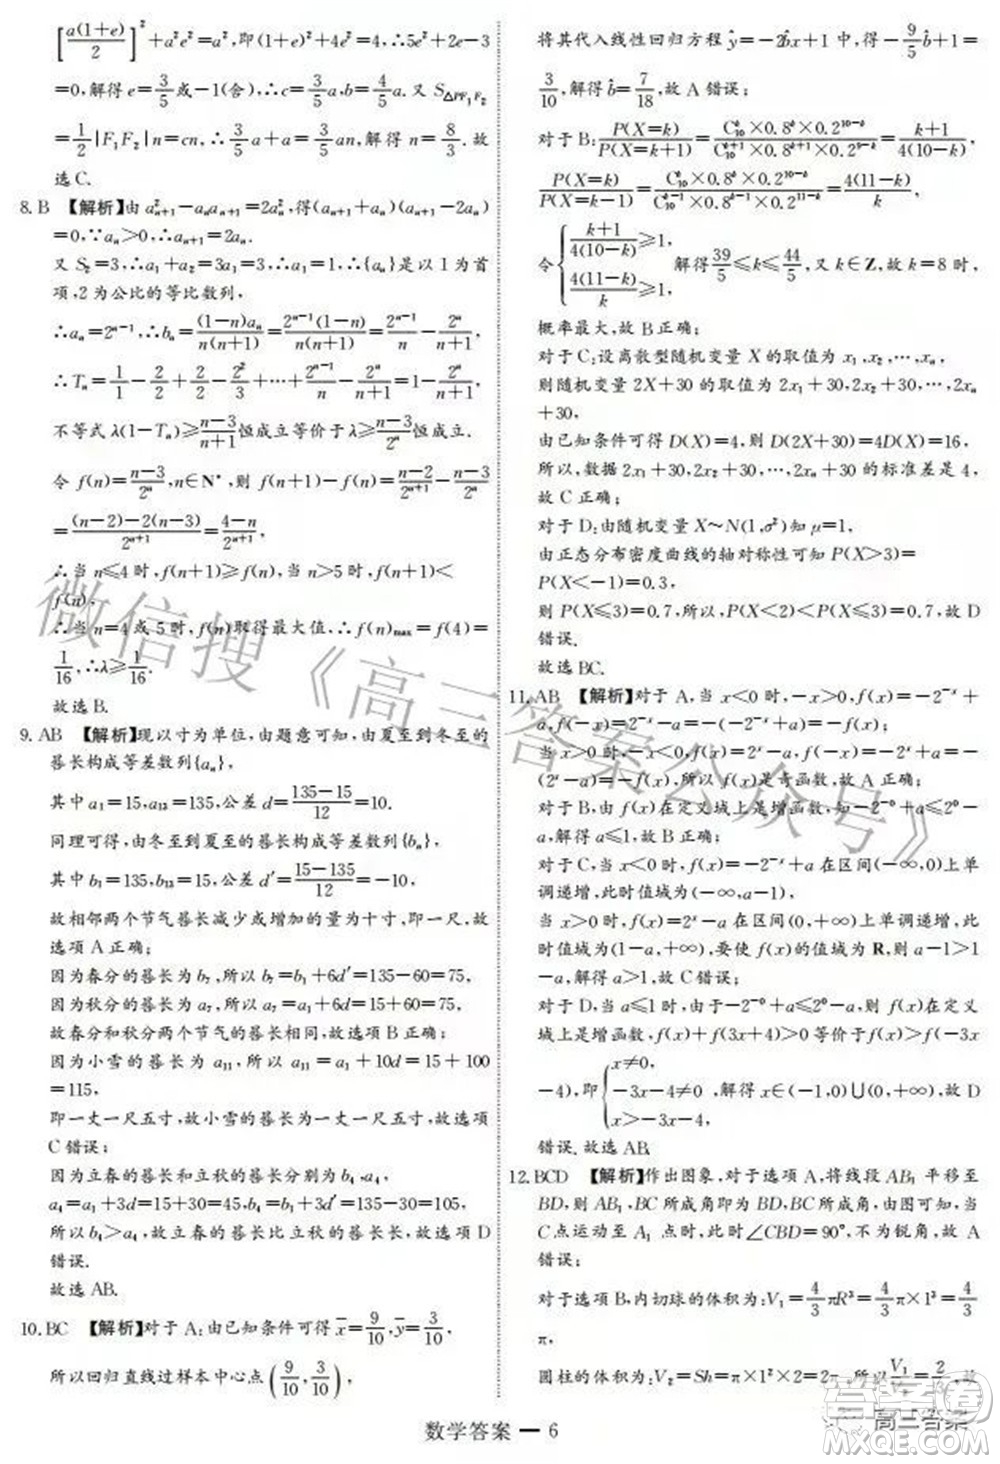 [a(1+e)/2]²+a²e²=a²,即(1+e)²+4e²=4,∴5e²+2e-3
=0,解得 e=3/5或-1(舍),∴c=3/5a,b=4/5a.又 S△PF₁F₂
=1/2|F₁F₂|n=cn,3/5a+a+3/5an,解得 n=8/3.故
选C.
8. B 【解析】由 a²ₙ₊₁-aₙaₙ₊₁=2a²ₙ,得(aₙ₊₁+aₙ)(aₙ₊₁-2aₙ)
=0,∵aₙ>0,∴aₙ₊₁=2aₙ.
又 S₂=3,∴a₁+a₂=3=3a₁,∴a₁=1,∴{aₙ}是以 1 为首
项,2 为公比的等比数列,
∴aₙ=2ⁿ⁻¹,∴bₙ=(1-n)aₙ/n(n+1)=2ⁿ⁻¹(1-n)/n(n+1)=2ⁿ⁻¹/n-2ⁿ/n+1,
∴Tₙ=1/1-2/2+2/2-2²/3+…+2ⁿ⁻¹/n-2ⁿ/n+1=1-2ⁿ/n+1.
不等式 λ(1-Tₙ)≥n-3/n+1恒成立等价于 λ≥n-3/2ⁿ恒成立.
令 f(n)=n-3/2ⁿ,n∈N*,则 f(n+1)-f(n)=n-2/2ⁿ⁺¹-n-3/2ⁿ
=(n-2)-2(n-3)/2ⁿ⁺¹=4-n/2ⁿ⁺¹,
∴当 n≤4 时,f(n+1)≥f(n),当 n>5 时,f(n+1)<
f(n),
∴当 n=4 或 5 时,f(n)取得最大值,∴f(n)max=f(4)=
1/16,∴λ≥1/16.
故选 B.
9. AB 【解析】现以寸为单位,由题意可知,由夏至到冬至的
晷长构成等差数列{aₙ},
其中 a₁=15,a₁₃=135,公差 d=135-15/12=10.
同理可得,由冬至到夏至的晷长构成等差数列{bₙ},
其中 b₁=135,b₁₃=15,公差 d′=15-135/12=-10,
故相邻两个节气晷长减少或增加的量为十寸,即一尺,故
选项 A 正确;
因为春分的晷长为 b₇,所以 b₇=b₁+6d′=135-60=75,
因为秋分的晷长为 a₇,所以 a₇=a₁+6d=15+60=75,
故春分和秋分两个节气的晷长相同,故选项 B 正确;
因为小雪的晷长为 a₁₁,所以 a₁₁=a₁+10d=15+100
=115,
即一丈一尺五寸,故小雪的晷长为一丈一尺五寸,故选项
C 错误;
因为立春的晷长和立秋的晷长分别为 b₄,a₄,
a₄=a₁+3d=15+30=45,b₄=b₁+3d′=135-30=105,
所以 b₄>a₄,故立春的晷长比立秋的晷长长,故选项 D
错误.
故选 AB.
10. BC 【解析】对于 A:由已知条件可得 x̄=9/10,ȳ=3/10,
所以回归直线过样本中心点(9/10,3/10),
将其代入线性回归方程 ŷ=-2b̂x+1 中,得-9/5b̂+1=
3/10,解得 b̂=7/18,故 A 错误;
对于 B:P(X=k)/P(X=k+1)=Cᵏ₁₀×0.8ᵏ×0.2¹⁰⁻ᵏ/Cᵏ⁺¹₁₀×0.8ᵏ⁺¹×0.2⁹⁻ᵏ=k+1/4(10-k),
P(X=k)/P(X=k-1)=Cᵏ₁₀×0.8ᵏ×0.2¹⁰⁻ᵏ/Cᵏ⁻¹₁₀×0.8ᵏ⁻¹×0.2¹¹⁻ᵏ=4(11-k)/k,
令{k+1/4(10-k)≥1, 4(11-k)/k≥1,解得39/5≤k≤44/5,又 k∈Z,故 k=8 时,
概率最大,故 B 正确;
对于 C:设离散型随机变量 X 的取值为 x₁,x₂,…,xₙ,
则随机变量 2X+30 的取值为 2x₁+30,2x₂+30,…,2xₙ
+30,
由已知条件可得 D(X)=4,则 D(2X+30)=4D(X)=16,
所以,数据 2x₁+30,2x₂+30,…,2xₙ+30 的标准差是 4,
故 C 正确;
对于 D:由随机变量 X~N(1,σ²)知 μ=1,
由正态分布密度曲线的轴对称性可知 P(X>3)=
P(X<-1)=0.3,
则 P(X≤3)=0.7,所以,P(X<2)<P(X≤3)=0.7,故 D
错误.
故选 BC.
11. AB 【解析】对于 A,当 x<0 时,-x>0,f(x)=-2⁻ˣ+
a,f(-x)=2⁻ˣ-a=-(-2⁻ˣ+a)=-f(x);
当 x>0 时,-x<0,f(x)=2ˣ-a,f(-x)=-2ˣ+a=-
(2ˣ-a)=-f(x),则函数 f(x)是奇函数,故 A 正确;
对于 B,由 f(x)在定义域上是增函数,知-2⁻⁰+a≤2⁰-
a,解得 a≤1,故 B 正确;
对于 C,当 x<0 时,f(x)=-2⁻ˣ+a 在区间(-∞,0)上单
调递增,此时值域为(-∞,a-1),
当 x>0 时,f(x)=2ˣ-a 在区间(0,+∞)上单调递增,此
时值域为(1-a,+∞),要使 f(x)的值域为 R,则 a-1>1
-a,解得 a>1,故 C 错误;
对于 D,当 a≤1 时,由于-2⁻⁰+a≤2⁰-a,则 f(x)在定义
域上是增函数,f(x)+f(3x+4)>0 等价于 f(x)>f(-3x
-4),即{x≠0, -3x-4≠0, x>-3x-4,解得 x∈(-1,0)∪(0,+∞),故 D
错误.故选 AB.
12. BCD 【解析】作出图象,对于选项 A,将线段 AB₁ 平移至
BD,则 AB₁,BC 所成角即为 BD,BC 所成角,由图可知,当
C 点运动至 A₁ 点时,此时∠CBD=90°,不为锐角,故 A
错误;
对于选项 B,内切球的体积为:V₁=4/3πR³=4/3π×1³=4/3
π,
圆柱的体积为:V₂=Sh=π×1²×2=2π,所以V₁/V₂=2/3,
数学答案 — 6
微信搜《高三答案公众号》
高三答案
答案圈
MXQE.COM